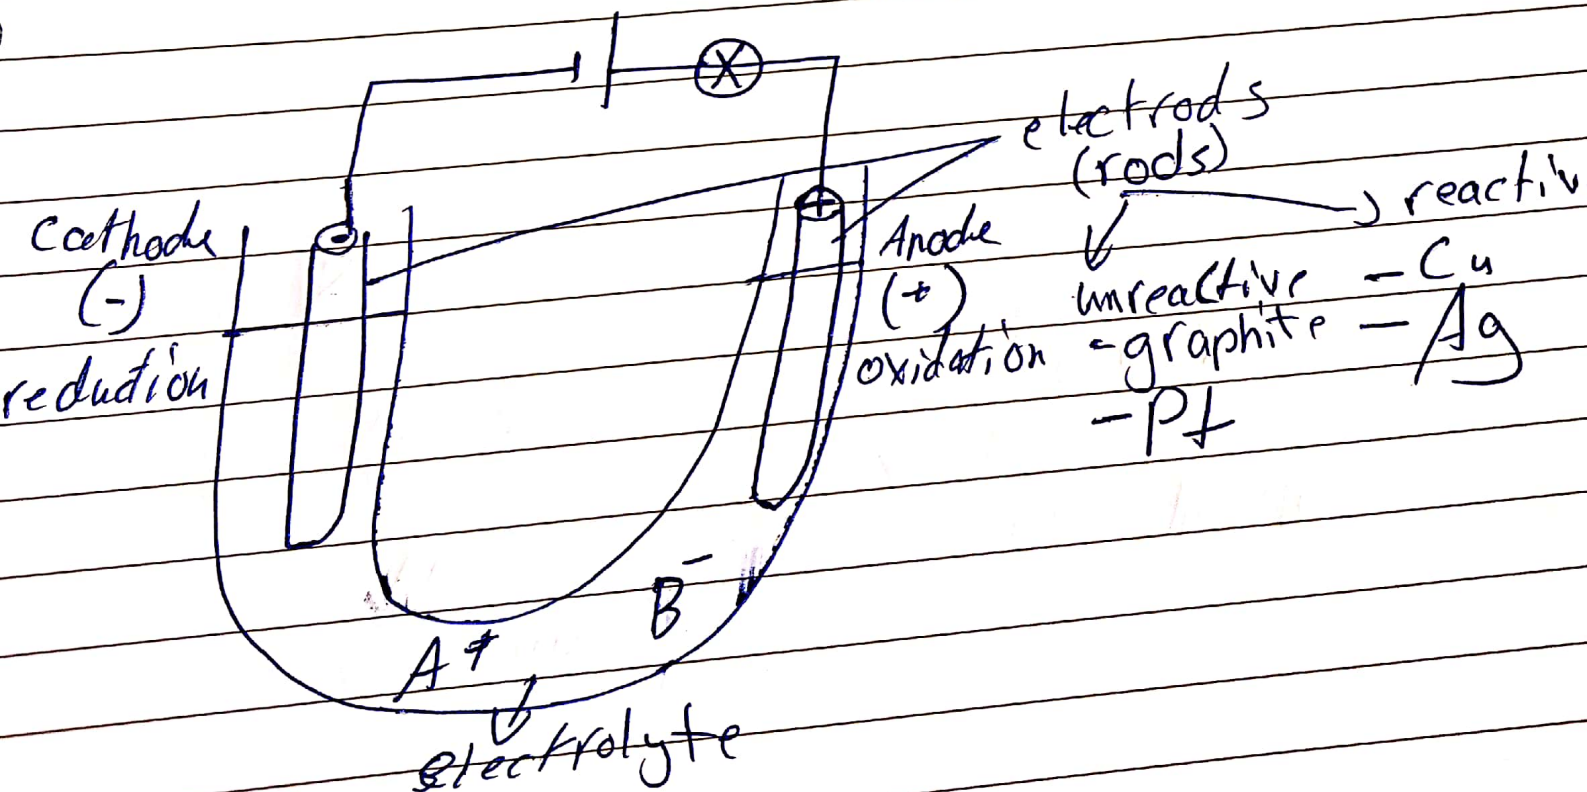 electrods
(rods)
reactiv
Cathode
(-)
reduction
Anode
(+)
oxidation
unreactive
-graphite
-Pt
- Cu
- Ag
A+
B-
electrolyte